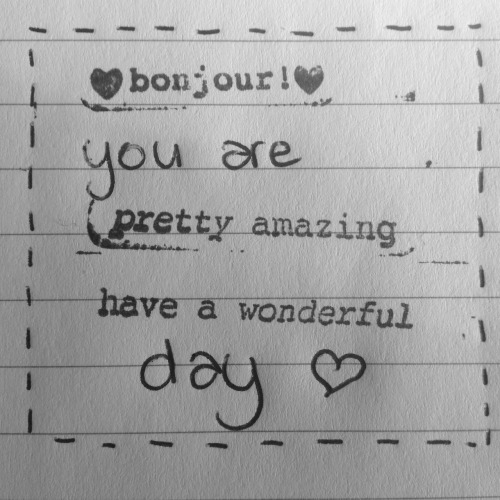 ♥bonjour!♥
you are
pretty amazing
have a wonderful
day ♡